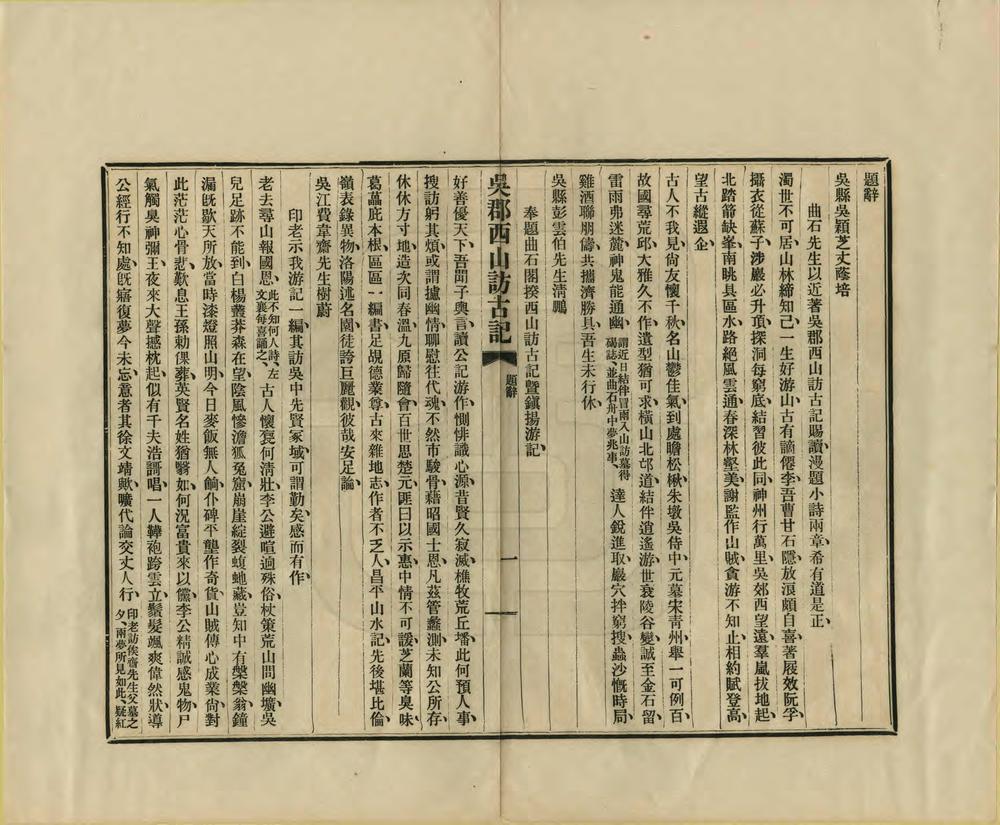 題辭
吳縣吳穎芝丈蔭培
曲石先生以近著吳郡西山訪古記賜讀漫題小詩兩章希有道是正
濁世不可居山林締知己一生好游山古有謫僊李吾曹甘石隱放浪頗自喜著屐效阮孚
攝衣從蘇子涉巖必升頂探洞每窮底結習彼此同神州行萬里吳郊西望遠羣嵐拔地起
北踏箭缺峯南眺具區水路絕風雲通春深林壑美謝監作山賊貪游不知止相約賦登高
望古縱遐企
古人不我見尙友懷千秋名山鬱佳氣到處瞻松楸朱墩吳侍中元墓宋靑州舉一可例百
故國尋荒邱大雅久不作遺型猶可求橫山北邙道結伴逍遙游世衰陵谷變誠至金石留
雷雨弗迷麓神鬼能通幽謂近日結伴冒雨入山訪墓得碣誌並曲石舟中夢兆事達人銳進取巖穴拌窮搜蟲沙慨時局
雞酒聯朋儔共攜濟勝具吾生未行休
吳縣彭雲伯先生淸鵬
奉題曲石閣揆西山訪古記曁鎭揚游記
吳郡西山訪古記 題辭 一
好善優天下吾聞子輿言讀公記游作惻悱識心源昔賢久寂滅樵牧荒丘墦此何預人事
搜訪躬其煩或謂攄幽情聊慰往代魂不然市駿骨藉昭國士恩凡茲管蠡測未知公所存
休休方寸地造次同春溫九原歸隨會百世思楚元匪曰以示惠中情不可諼芝蘭等臭味
葛藟庇本根區區一編書足覘德業尊古來雜地志作者不乏人昌平山水記先後堪比倫
嶺表錄異物洛陽述名園徒誇巨麗觀彼哉安足論
吳江費韋齋先生樹蔚
印老示我游記一編其訪吳中先賢冢域可謂勤矣感而有作
老去尋山報國恩此不知何人詩左文襄每喜誦之古人懷襃何淸壯李公避喧逈殊俗杖策荒山問幽壙吳
兒足跡不能到白楊叢莽森在望陰風慘澹狐兔窟崩崖綻裂蝮虵藏豈知中有槃槃翁鐘
漏旣歇天所放當時漆燈照山明今日麥飯無人餉仆碑平壟作奇貨山賊傳心成業尙對
此茫茫心骨悲歎息王孫勅倮葬英賢名姓猶翳如何況富貴來以儻李公精誠感鬼物尸
氣觸臭神彌王夜來大聲撼枕起似有千夫浩謌唱一人鞾袍跨雲立鬚髮颯爽偉然狀導
公經行不知處旣寤復夢今未忘意者其徐文靖歟曠代論交丈人行印老訪俟齋先生父墓之夕兩夢所見如此疑紅